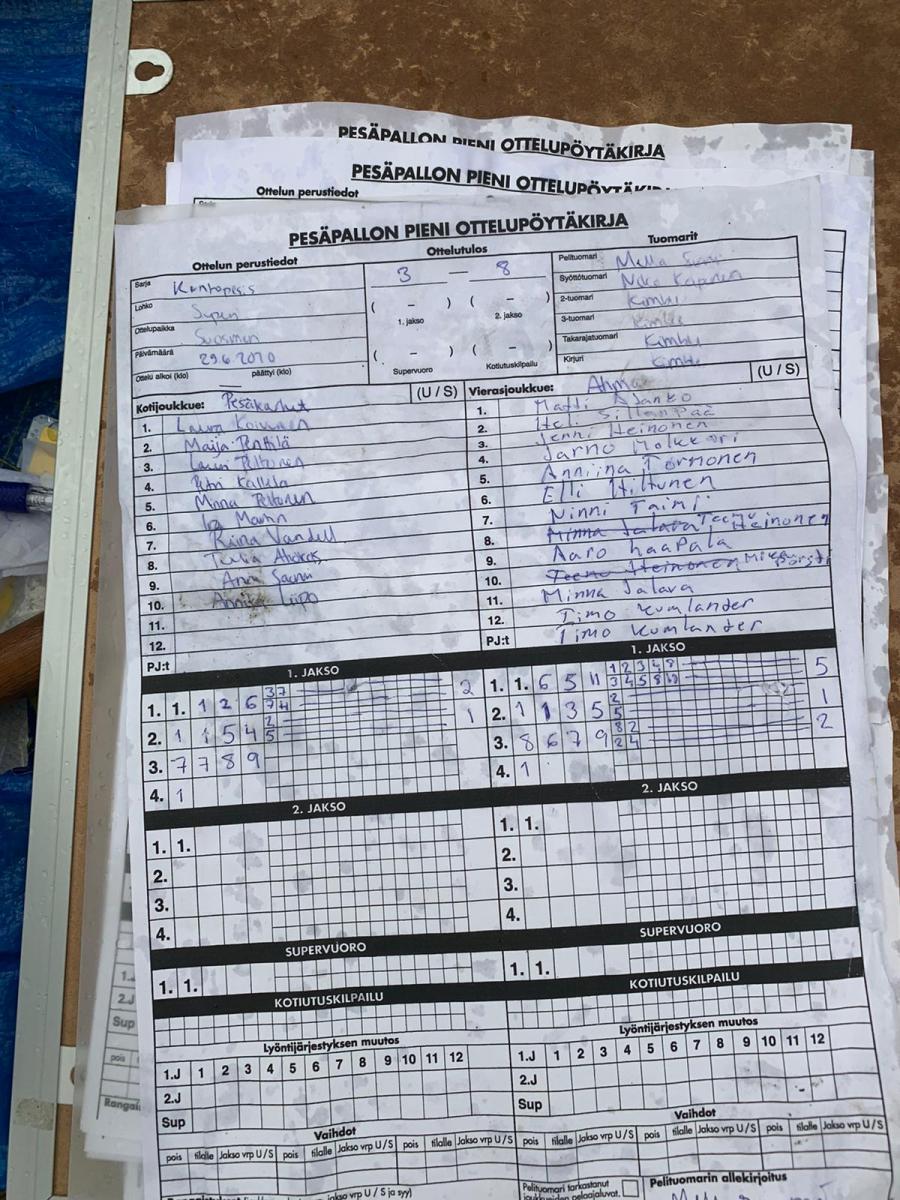 PESÄPALLON PIENI OTTELUPÖYTÄKIRJA
PESÄPALLON PIENI OTTELUPÖYTÄKIRJA
Ottelun perustiedot
PESÄPALLON PIENI OTTELUPÖYTÄKIRJA
Ottelun perustiedot
Ottelutulos
Tuomarit
Sarja Kuntopesis
Lohko
Ottelupaikka
Päivämäärä
Ottelu alkoi (klo) — päättyi (klo)
3 — 8
( – ) ( – )
1. jakso 2. jakso
( – ) ( – )
Supervuoro Kotiutuskilpailu
Pelituomari Mella
Syöttötuomari
2-tuomari Kimbu
3-tuomari Kimbu
Takarajatuomari Kimbu
Kirjuri Kimbu
Kotijoukkue: Pesäkarhut (U / S)
1. Laura Koivunen
2. Maija Penttilä
3. Lauri Peltonen
4. Petri Kallela
5. Minna Peltonen
6.
7. Riina Vandell
8. Ahokas
9. Anna
10. Annika Liipo
11.
12.
PJ:t
Vierasjoukkue: Ahma (U / S)
1. Matti Ajanko
2. Heli Sillanpää
3. Jenni Heinonen
4. Jarno
5. Anniina Tormonen
6. Elli Hiltunen
7. Ninni Taimi
8. Minna Jalava Teemu Heinonen
9. Aaro Haapala
10. Teemu Heinonen Mika
11. Minna Jalava
12. Timo Kumlander
PJ:t Timo Kumlander
1. JAKSO
1. 1. 1 2 6 37 74 2
2. 1 1 5 4 2 5 1
3. 7 7 8 9
4. 1
1. JAKSO
1. 1. 6 5 11 5
2. 1 1 3 5 2 5 1
3. 8 6 7 9 82 24 2
4. 1
2. JAKSO
1. 1.
2.
3.
4.
2. JAKSO
1. 1.
2.
3.
4.
SUPERVUORO
1. 1.
SUPERVUORO
1. 1.
KOTIUTUSKILPAILU
KOTIUTUSKILPAILU
Lyöntijärjestyksen muutos
1.J 1 2 3 4 5 6 7 8 9 10 11 12
2.J
Sup
Lyöntijärjestyksen muutos
1.J 1 2 3 4 5 6 7 8 9 10 11 12
2.J
Sup
Vaihdot
pois tilalle Jakso vrp U / S pois tilalle Jakso vrp U / S pois tilalle Jakso vrp U / S
Vaihdot
pois tilalle Jakso vrp U / S pois tilalle Jakso vrp U / S pois tilalle Jakso vrp U / S
jakso vrp U / S ja syy)
Pelituomari tarkastanut
joukkueiden pelaajaluvat.
Pelituomarin allekirjoitus
1.J
2.J
Sup
pois